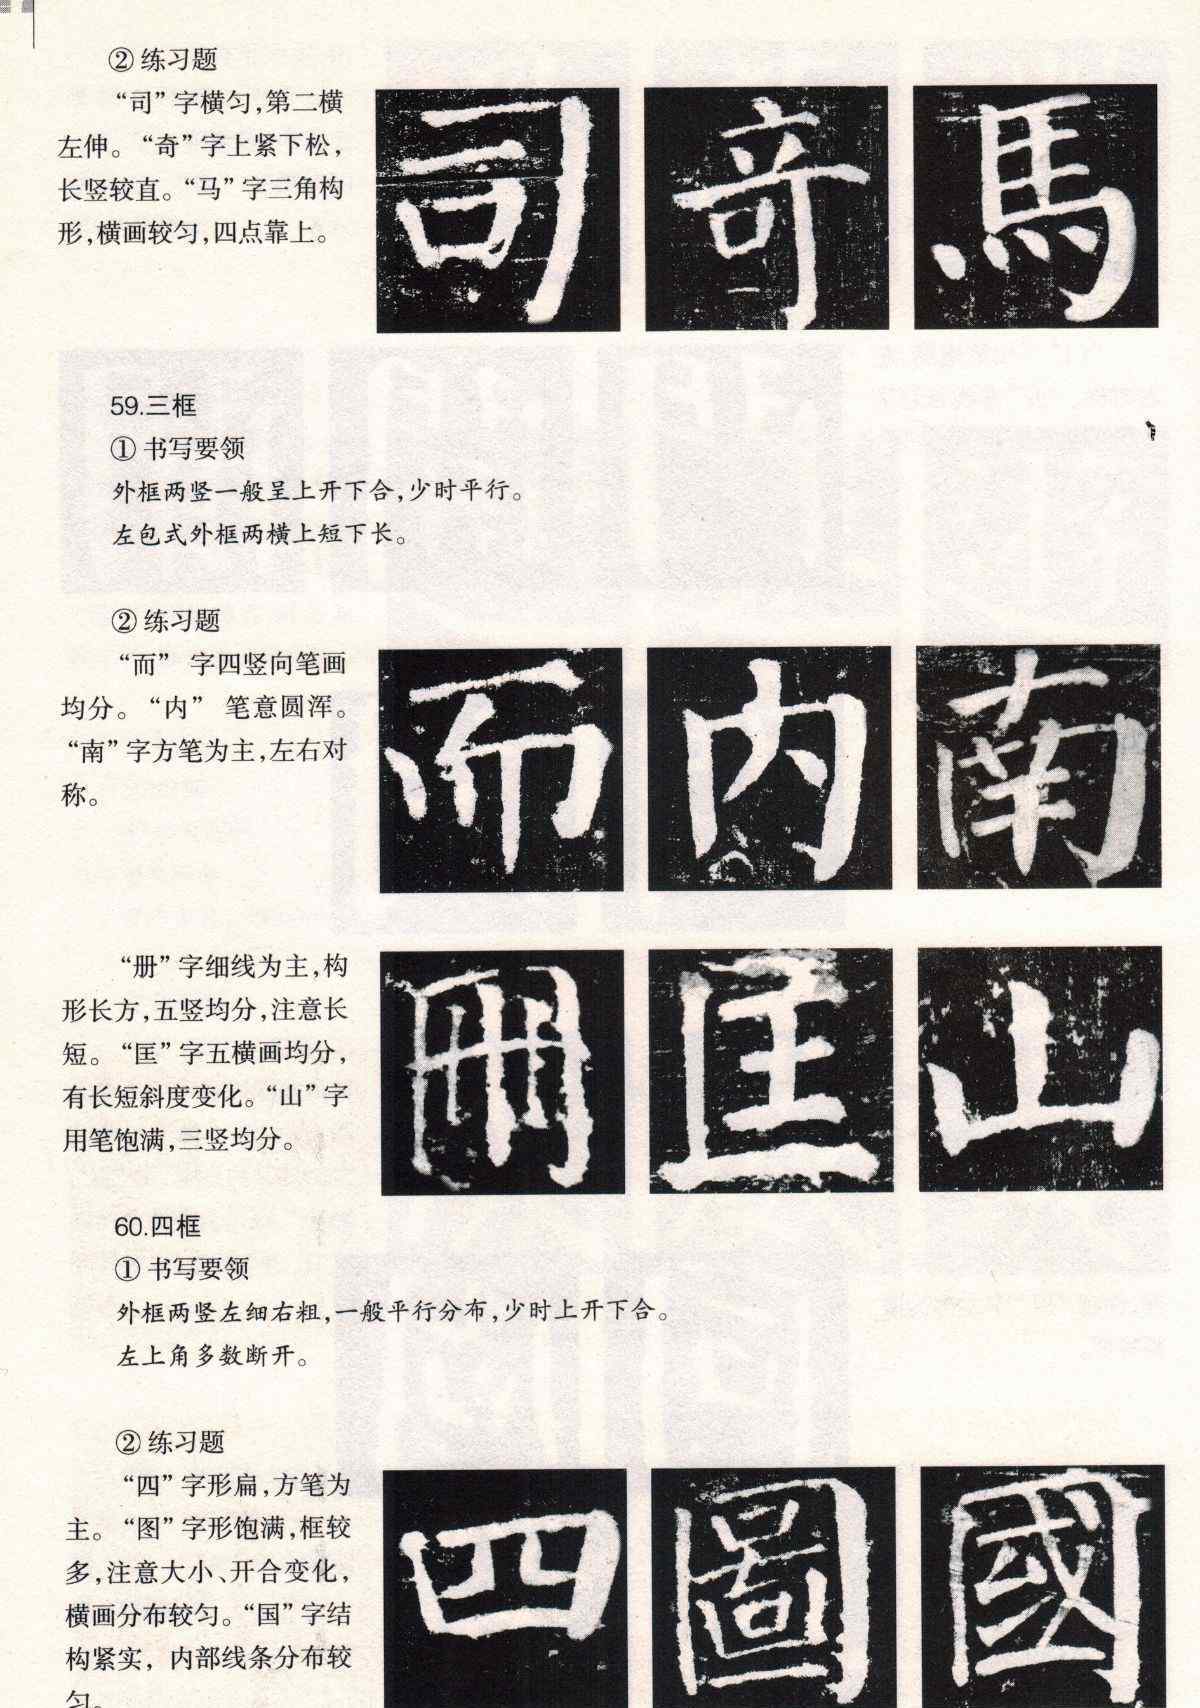 ② 练习题
“司”字横匀,第二横
左伸。“奇”字上紧下松,
长竖较直。“马”字三角构
形,横画较匀,四点靠上。
司 奇 馬
59.三框
① 书写要领
外框两竖一般呈上开下合,少时平行。
左包式外框两横上短下长。
② 练习题
“而” 字四竖向笔画
均分。“内” 笔意圆浑。
“南”字方笔为主,左右对
称。
而 内 南
“册”字细线为主,构
形长方,五竖均分,注意长
短。“匡”字五横画均分,
有长短斜度变化。“山”字
用笔饱满,三竖均分。
冊 匡 山
60.四框
① 书写要领
外框两竖左细右粗,一般平行分布,少时上开下合。
左上角多数断开。
② 练习题
“四”字形扁,方笔为
主。“图”字形饱满,框较
多,注意大小、开合变化,
横画分布较匀。“国”字结
构紧实, 内部线条分布较
匀。
四 圖 國